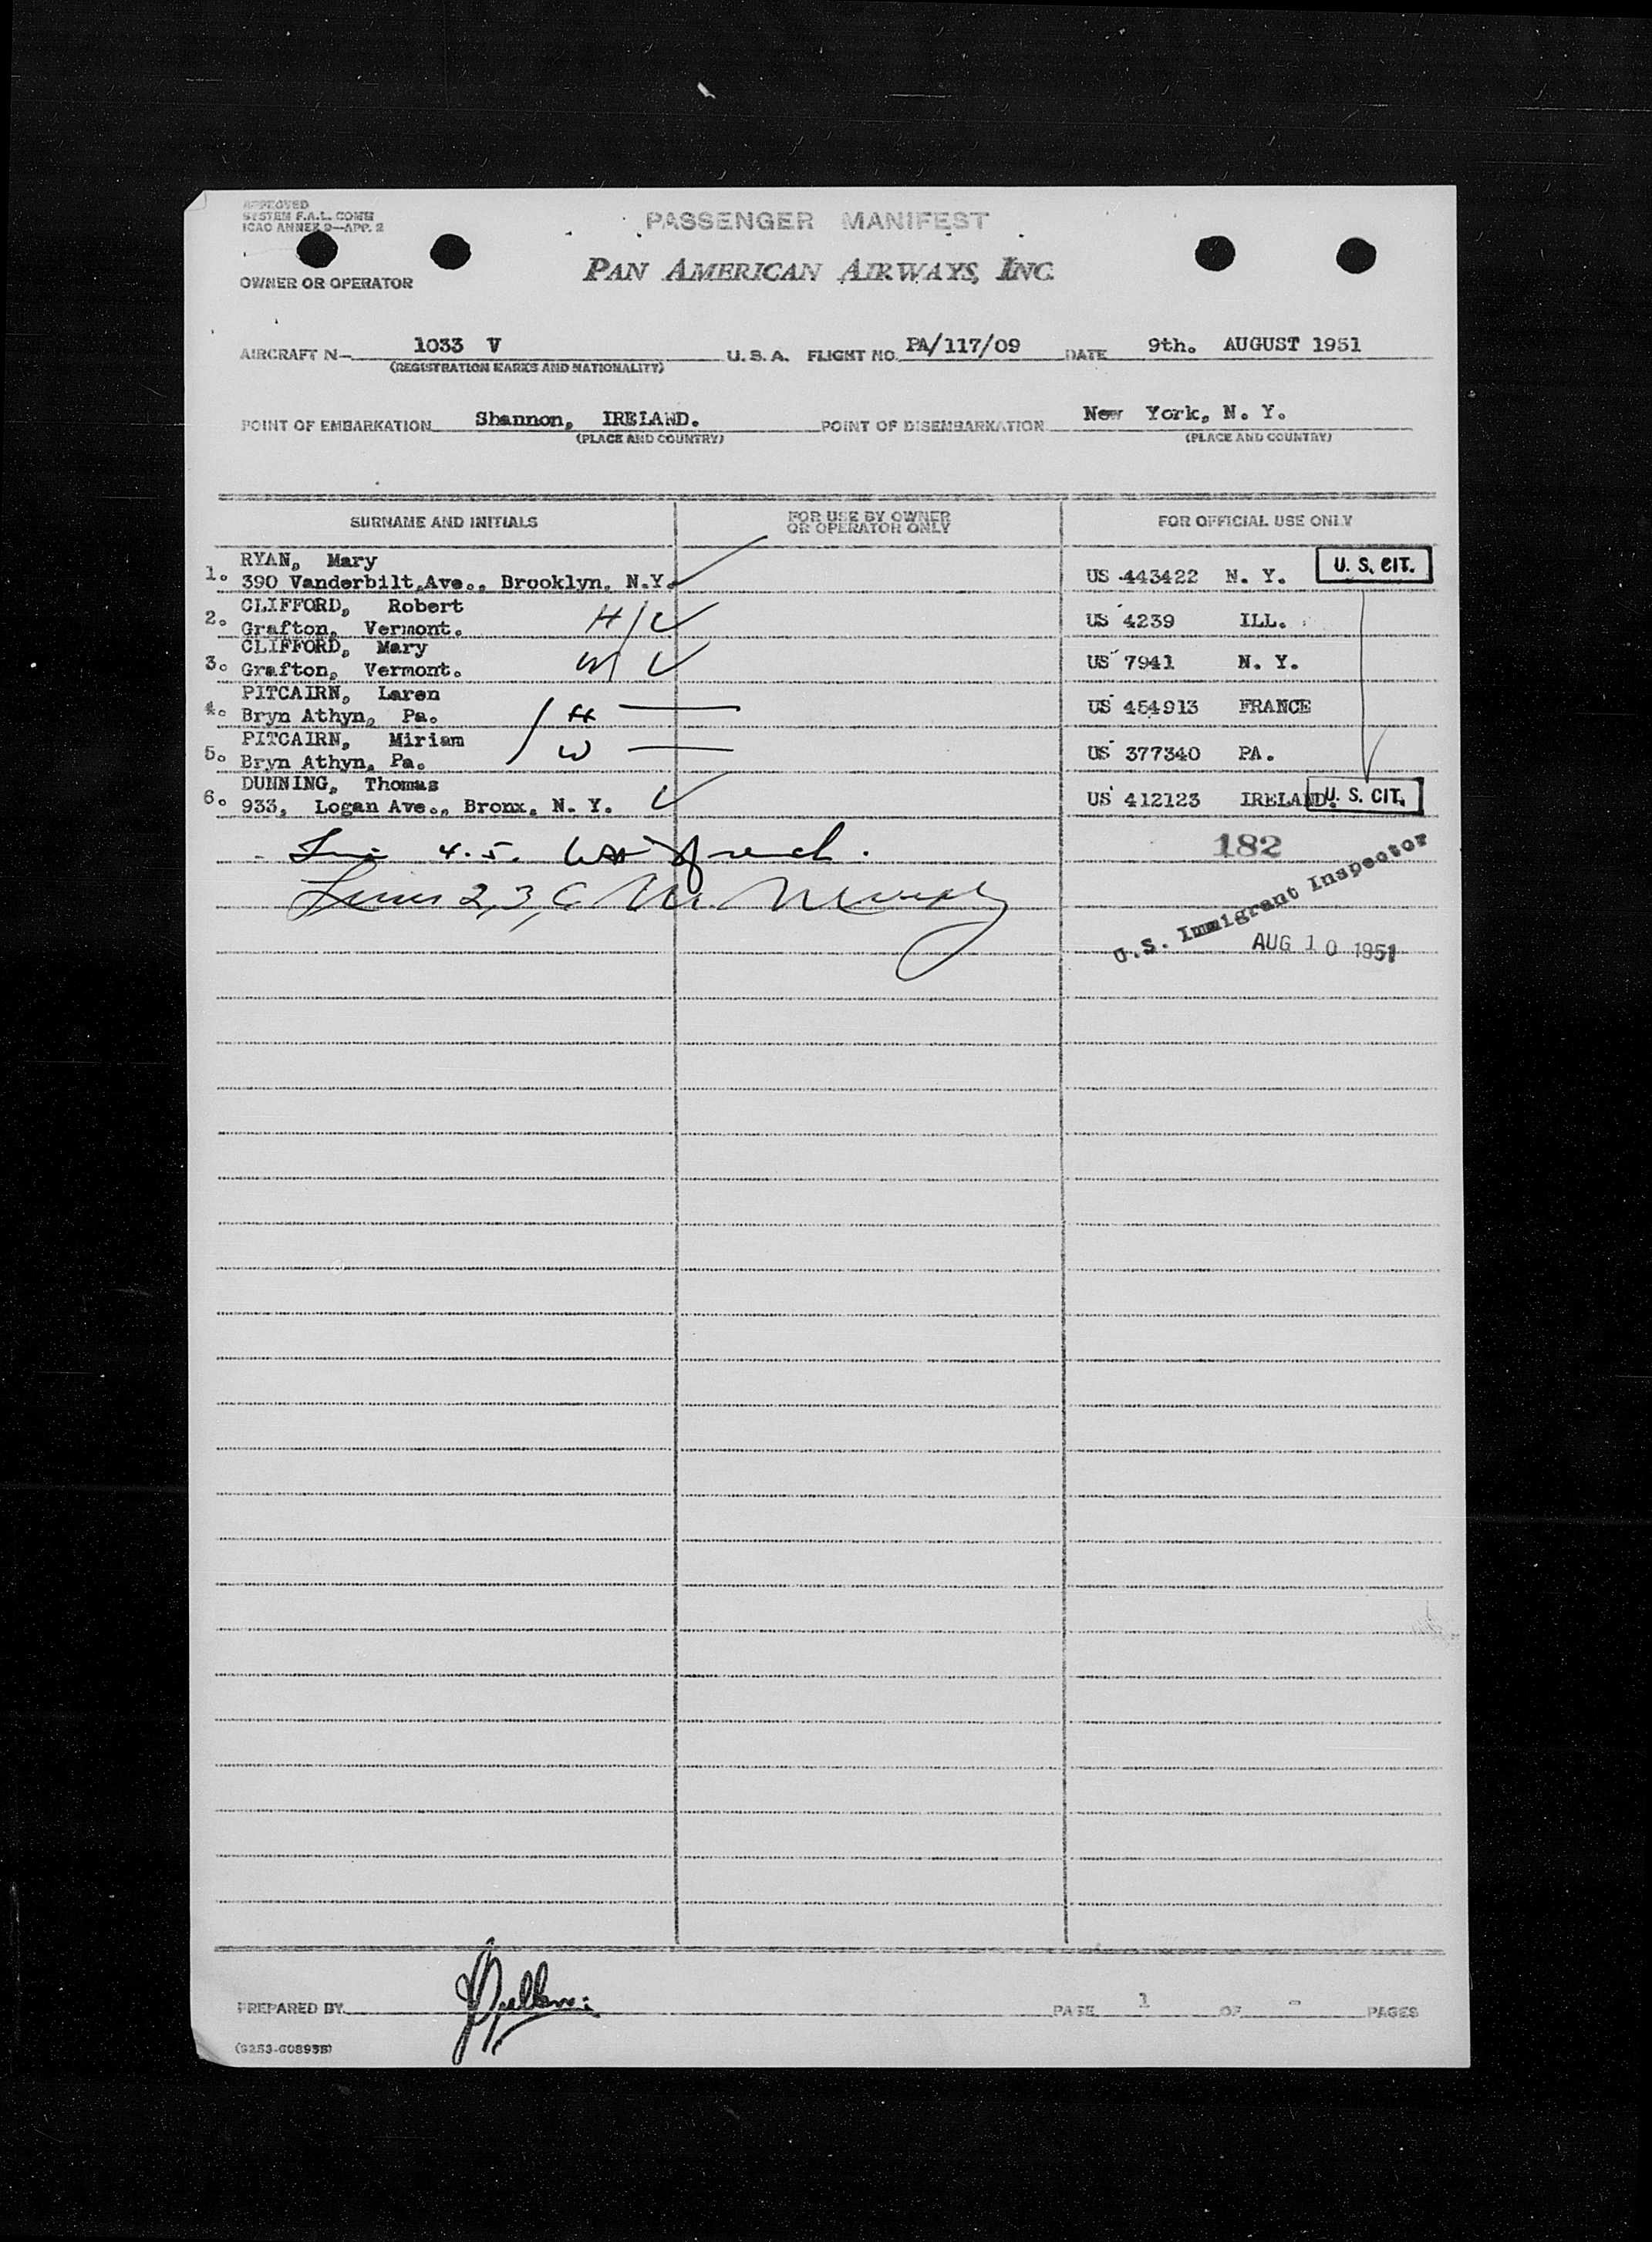 APPROVED
SYSTEM F.A.L. COMM
ICAO ANNEX 9—APP. 2
PASSENGER MANIFEST
OWNER OR OPERATOR
PAN AMERICAN AIRWAYS, INC.
AIRCRAFT N— 1033 V U.S.A. FLIGHT NO. PA/117/09 DATE 9th. AUGUST 1951
(REGISTRATION MARKS AND NATIONALITY)
POINT OF EMBARKATION Shannon, IRELAND. POINT OF DISEMBARKATION New York, N. Y.
(PLACE AND COUNTRY) (PLACE AND COUNTRY)
SURNAME AND INITIALS FOR USE BY OWNER OR OPERATOR ONLY FOR OFFICIAL USE ONLY
RYAN, Mary
1. 390 Vanderbilt Ave., Brooklyn, N.Y. US 443422 N. Y. U. S. CIT.
CLIFFORD, Robert
2. Grafton, Vermont. H US 4239 ILL.
CLIFFORD, Mary
3. Grafton, Vermont. W US 7941 N. Y.
PITCAIRN, Laren
4. Bryn Athyn, Pa. H US 454913 FRANCE
PITCAIRN, Miriam
5. Bryn Athyn, Pa. W US 377340 PA.
DUNNING, Thomas
6. 933, Logan Ave., Bronx, N. Y. US 412123 IRELAND. U. S. CIT.
4.5.
182
Lines 2, 3, 6
U.S. Immigrant Inspector
AUG 10 1951
PREPARED BY PAGE 1 OF - PAGES